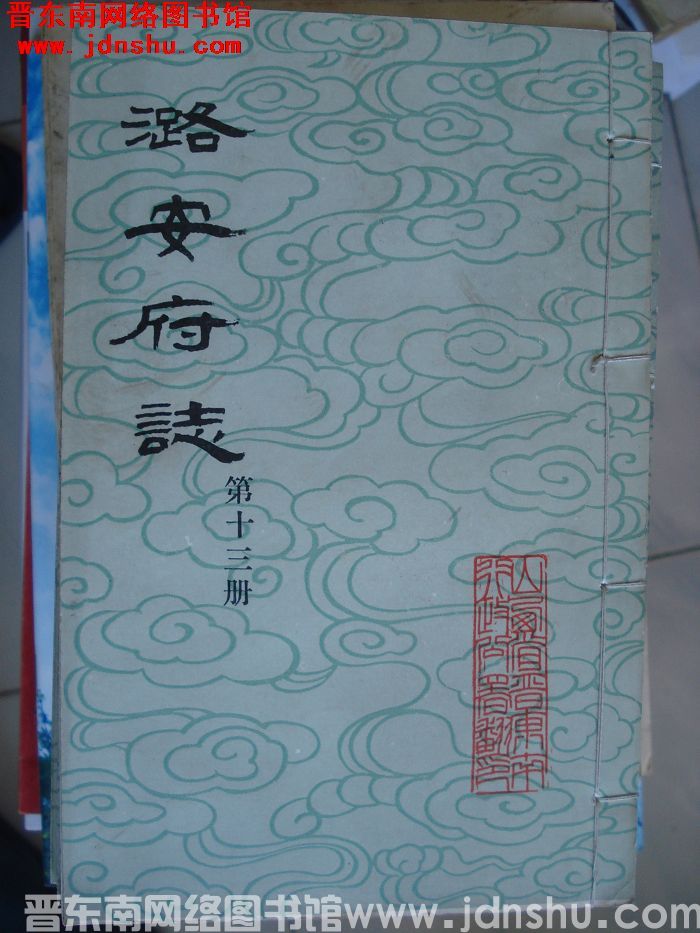 晋东南网络图书馆
www.jdnshu.com
潞安府誌
第十三册
山西省晋东南
行政公署翻印
晋东南网络图书馆www.jdnshu.com